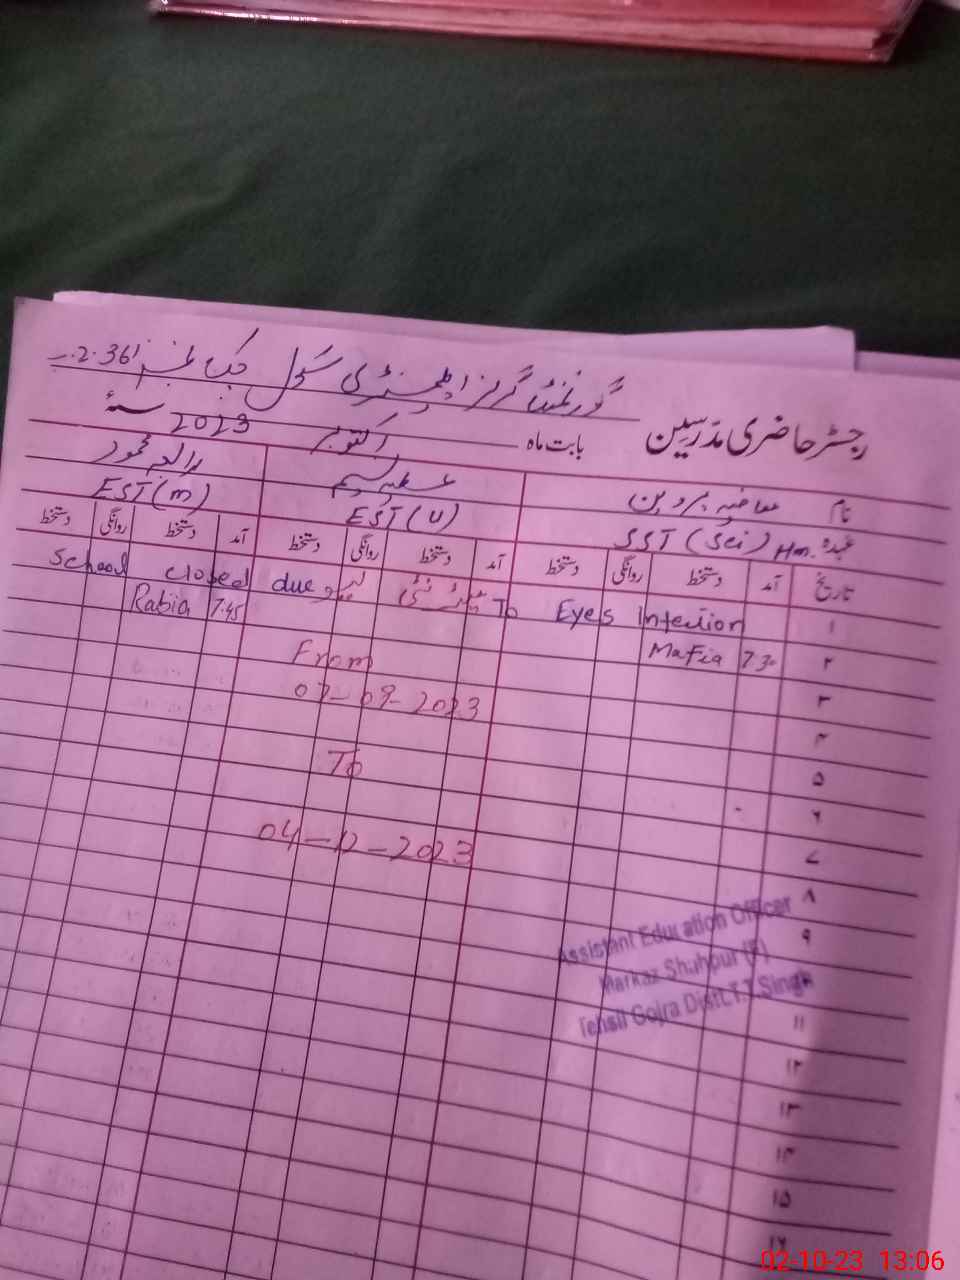 گورنمنٹ گرلز ایلیمنٹری سکول چک نمبر 361
رجسٹر حاضری مدرسین بابت ماہ اکتوبر 2023 سنۂ
نام
عہدہ SST (Sci) Hm. EST (U) EST (m)
تاریخ آمد دستخط روانگی دستخط آمد دستخط روانگی دستخط آمد دستخط روانگی دستخط
۱ School closed due To Eyes Infection
۲ Mafia 7.30 Rabia 7:45
From
۳
07-09-2023
۴
To
۵
۶
04-12-2023
۷
۸
Assistant Education Officer
۹
Markaz Shahpur (F)
Tehsil Gojra Distt.T.T.Singh
۱۱
۱۲
۱۳
۱۴
۱۵
02-10-23 13:06